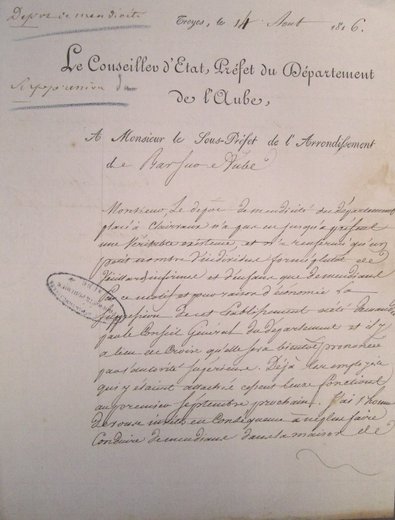 Dépôt de mendicité
Troyes, le 14 Aout 1816.
Suppression du
Le Conseiller d'Etat, Préfet du Département
de l'Aube,
A Monsieur le Sous-Préfet de l'Arrondissement
de Bar sur Aube
Monsieur, Le dépôt de mendicité du département
placé à Clairvaux n'a que jusqu'à présent
une véritable existence, et n'a renfermé qu'un
petit nombre d'individus formé plutôt de
vieillards infirmes et d'enfans que de mendians
Par ce motif et pour raison d'économie la
suppression de cet établissement a été demandée
par le Conseil Général du département et il y
a lieu de croire qu'elle sera bientôt prononcée
par l'autorité supérieure. Déjà les employés
qui y étaient attachés cessent leurs fonctions
au premier Septembre prochain. J'ai l'honneur
de vous inviter en Conséquence à ne plus faire
Conduire de mendians dans la maison de